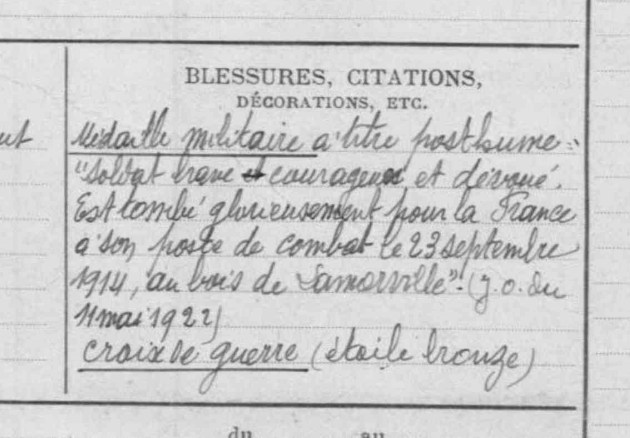 BLESSURES, CITATIONS,
DÉCORATIONS, ETC.
Médaille militaire à titre posthume :
"Soldat brave et courageux et dévoué.
Est tombé glorieusement pour la France
à son poste de combat le 23 septembre
1914, au bois de Lamorville". (J.O. du
11 mai 1922)
Croix de guerre (étoile bronze)
du au